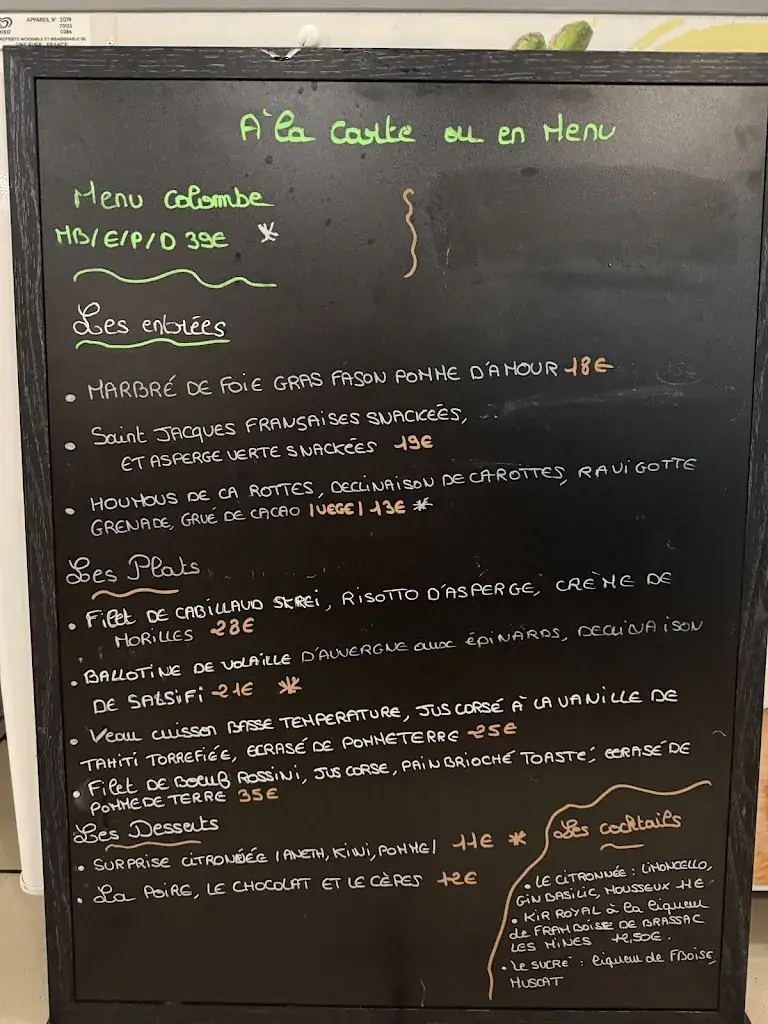 APPAREIL N° 2019
A la carte ou en Menu
Menu Colombe
MB/E/P/D 39€ *
Les entrées
• MARBRÉ DE FOIE GRAS FASON POMME D'AMOUR 18€
• Saint JACQUES FRANSAISES SNACKEÉS,
ET ASPERGE VERTE SNACKÉES 19€
• HOUMOUS DE CAROTTES, DECLINAISON DE CAROTTES, RAVIGOTTE
GRENADE, GRUÉ DE CACAO /VEGE/ 13€ *
Les Plats
• Filet DE CABILLAUD SKREI, RISOTTO D'ASPERGE, CRÈME DE
MORILLES 28€
• BALLOTINE DE VOLAILLE D'AUVERGNE aux ÉPINARDS, DECLINAISON
DE SALSIFI 21€ *
• Veau cuisson BASSE TEMPERATURE, JUS CORSÉ À LA VANILLE DE
TAHITI TORREFIÉE, ECRASÉ DE POMMETERRE 25€
• Filet DE BOEUB ROSSINI, JUS CORSE, PAIN BRIOCHÉ TOASTÉ, ECRASÉ DE
POMME DE TERRE 35€
Les Desserts
• SURPRISE CITRONÉE /ANETH, KIWI, POMME/ 11€ *
• La POIRE, LE CHOCOLAT ET LE CÈPES 12€
Les cocktails
• LE CITRONNÉE : LIMONCELLO,
GIN BASILIC, MOUSSEUX 11€
• KIR ROYAL à la liqueur
de FRAMBOISE DE BRASSAC
LES MINES 12,50€.
• Le SUCRÉ : liqueur de FBOISE,
MUSCAT